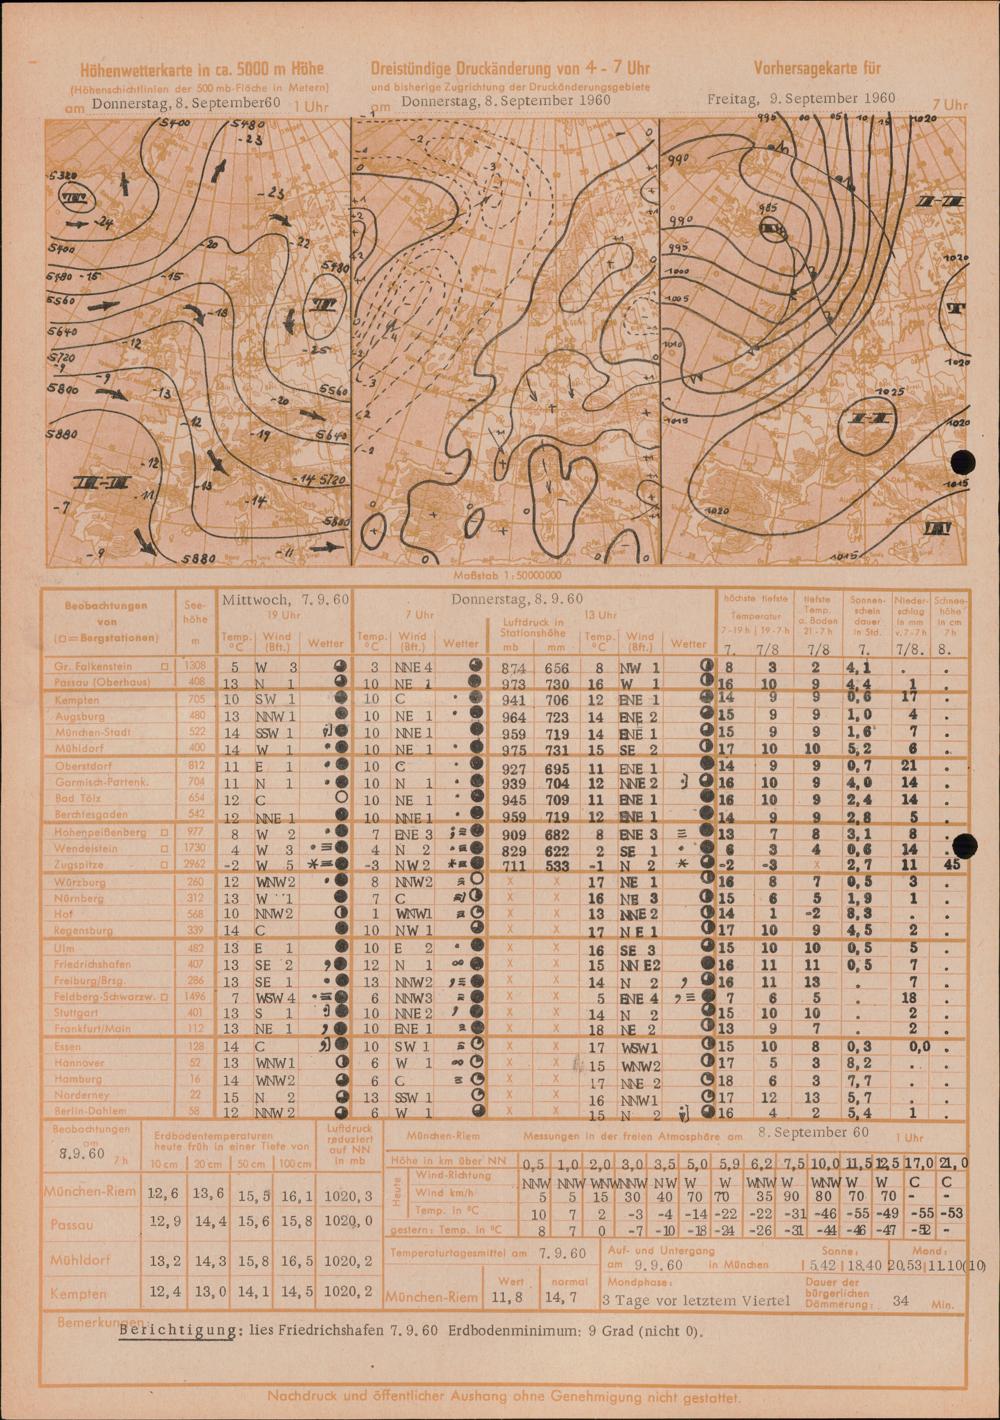 Höhenwetterkarte in ca. 5000 m Höhe
(Höhenschichtlinien der 500 mb-Fläche in Metern)
am Donnerstag, 8. September 60 1 Uhr
Dreistündige Druckänderung von 4 - 7 Uhr
und bisherige Zugrichtung der Druckänderungsgebiete
am Donnerstag, 8. September 1960
Vorhersagekarte für
Freitag, 9. September 1960 7 Uhr
Maßstab 1:50000000
Beobachtungen von (□=Bergstationen) Seehöhe m Mittwoch, 7.9.60 19 Uhr Donnerstag, 8.9.60 7 Uhr 13 Uhr
Temp. °C Wind (Bft.) Wetter Temp. °C Wind (Bft.) Wetter Luftdruck in Stationshöhe mb mm Temp. °C Wind (Bft.) Wetter
höchste tiefste Temperatur 7-19h 19-7h tiefste Temp. a. Boden 21-7h Sonnenschein dauer in Std. Niederschlag in mm v. 7-7h Schneehöhe in cm 7h
7. 7/8 7/8 7. 7/8. 8.
Gr. Falkenstein □ 1308 5 W 3 3 NNE 4 874 656 8 NW 1 8 3 2 4,1 . .
Passau (Oberhaus) 408 13 N 1 10 NE 1 973 730 16 W 1 16 10 9 4,4 1 .
Kempten 705 10 SW 1 10 C 941 706 12 ENE 1 14 9 9 0,6 17 .
Augsburg 480 13 NNW 1 10 NE 1 964 723 14 ENE 2 15 9 9 1,0 4 .
München-Stadt 522 14 SSW 1 10 NNE 1 959 719 14 ENE 1 15 9 9 1,6 7 .
Mühldorf 400 14 W 1 10 NE 1 975 731 15 SE 2 17 10 10 5,2 6 .
Oberstdorf 812 11 E 1 10 C 927 695 11 ENE 1 14 9 9 0,7 21 .
Garmisch-Partenk. 704 11 N 1 10 N 1 939 704 12 NNE 2 16 10 9 4,0 14 .
Bad Tölz 654 12 C 10 NE 1 945 709 11 ENE 1 16 10 9 2,4 14 .
Berchtesgaden 542 12 NNE 1 10 NNE 1 959 719 12 ENE 1 14 9 9 2,8 5 .
Hohenpeißenberg □ 977 8 W 2 7 ENE 3 909 682 8 ENE 3 13 7 8 3,1 8 .
Wendelstein □ 1730 4 W 3 4 N 2 829 622 2 SE 1 6 3 4 0,6 14 .
Zugspitze □ 2962 -2 W 5 -3 NW 2 711 533 -1 N 2 -2 -3 x 2,7 11 45
Würzburg 260 12 WNW 2 8 NNW 2 x x 17 NE 1 16 8 7 0,5 3 .
Nürnberg 312 13 W 1 7 C x x 16 NE 3 15 6 5 1,9 1 .
Hof 568 10 NNW 2 1 WNW1 x x 13 NNE 2 14 1 -2 8,3 . .
Regensburg 339 14 C 10 NW 1 x x 17 NE 1 17 10 9 4,5 2 .
Ulm 482 13 E 1 10 E 2 x x 16 SE 3 15 10 10 0,5 5 .
Friedrichshafen 407 13 SE 2 12 N 1 x x 15 NNE2 16 11 11 0,5 7 .
Freiburg/Brsg. 286 13 SE 1 13 NNW2 x x 14 N 2 16 11 13 . 7 .
Feldberg-Schwarzw. □ 1496 7 WSW 4 6 NNW3 x x 5 ENE 4 7 6 5 . 18 .
Stuttgart 401 13 S 1 10 NNE 2 x x 14 N 2 15 10 10 . 2 .
Frankfurt/Main 112 13 NE 1 10 ENE 1 x x 18 NE 2 13 9 7 . 2 .
Essen 128 14 C 10 SW 1 x x 17 WSW1 15 10 8 0,3 0,0 .
Hannover 52 13 WNW 1 6 W 1 x x 15 WNW2 17 5 3 8,2 . .
Hamburg 16 14 WNW2 6 C x x 17 NNE 2 18 6 3 7,7 . .
Norderney 22 15 N 2 13 SSW 1 x x 16 NNW1 17 12 13 5,7 . .
Berlin-Dahlem 58 12 NNW 2 6 W 1 x x 15 N 2 16 4 2 5,4 1 .
Beobachtungen am 8.9.60 7h
Erdbodentemperaturen heute früh in einer Tiefe von
10 cm 20 cm 50 cm 100 cm
Luftdruck reduziert auf NN in mb
München-Riem 12,6 13,6 15,5 16,1 1020,3
Passau 12,9 14,4 15,6 15,8 1020,0
Mühldorf 13,2 14,3 15,8 16,5 1020,2
Kempten 12,4 13,0 14,1 14,5 1020,2
München-Riem Messungen in der freien Atmosphäre am 8. September 60 1 Uhr
Höhe in km über NN 0,5 1,0 2,0 3,0 3,5 5,0 5,9 6,2 7,5 10,0 11,5 12,5 17,0 21,0
Heute
Wind-Richtung NNW NNW WNW NNW NW W W WNW W WNW W W C C
Wind km/h 5 5 15 30 40 70 70 35 90 80 70 70 - -
Temp. in °C 10 7 2 -3 -4 -14 -22 -22 -31 -46 -55 -49 -55 -53
gestern: Temp. in °C 8 7 0 -7 -10 -18 -24 -26 -31 -44 -46 -47 -52 -
Temperaturtagesmittel am 7.9.60
Wert normal
München-Riem 11,8 14,7
Auf- und Untergang am 9.9.60 in München
Sonne: 5.42 18.40 Mond: 20,53 11.10(10)
Mondphase: 3 Tage vor letztem Viertel
Dauer der bürgerlichen Dämmerung: 34 Min.
Bemerkungen:
Berichtigung: lies Friedrichshafen 7.9.60 Erdbodenminimum: 9 Grad (nicht 0).
Nachdruck und öffentlicher Aushang ohne Genehmigung nicht gestattet.